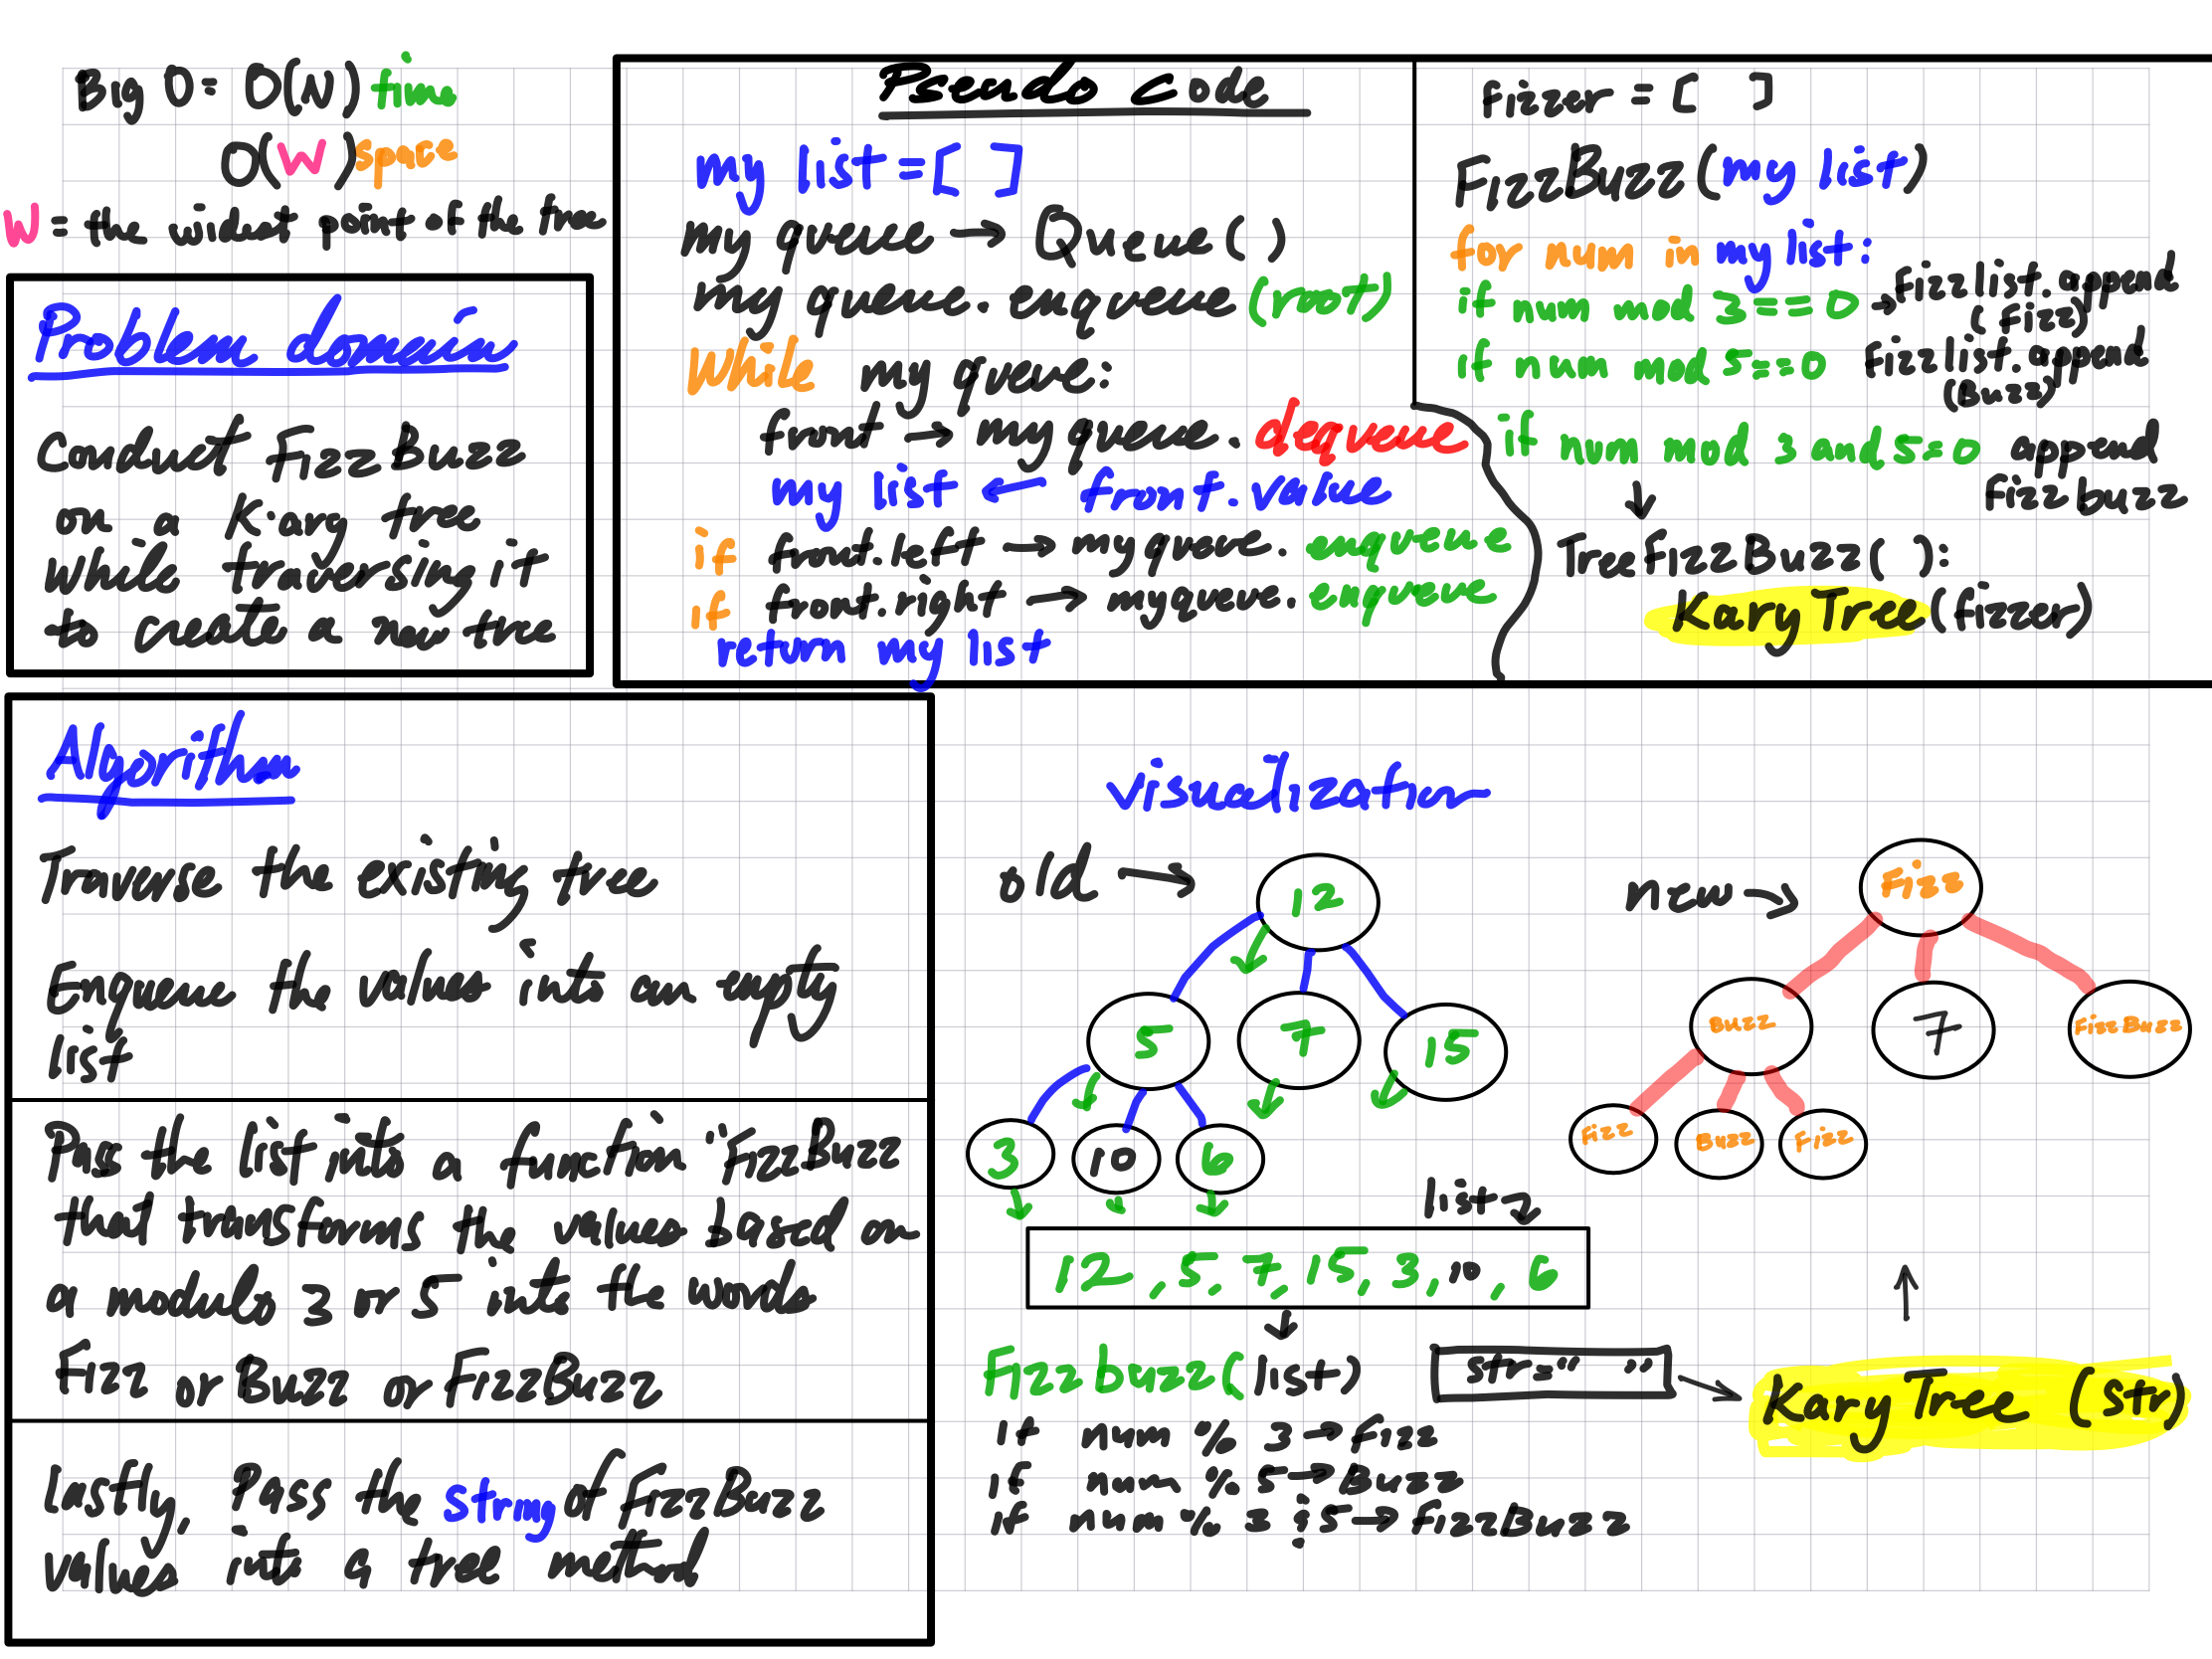 Big O = O(N) time
O(W) space
W = the widest point of the tree
Problem domain
Conduct FizzBuzz
on a Kary tree
while traversing it
to create a new tree
Pseudo Code
my list = [ ]
my queue → Queue()
my queue.enqueue (root)
While my queue:
front → my queue.dequeue
my list ← front.value
if front.left → myqueue.enqueue
if front.right → myqueue.enqueue
return my list
Fizzer = [ ]
FizzBuzz(my list)
for num in my list:
if num mod 3 == 0 → Fizzlist.append
(Fizz)
if num mod 5 == 0 Fizzlist.append
(Buzz)
if num mod 3 and 5 = 0 append
Fizz buzz
↓
TreeFizzBuzz( ):
Kary Tree (fizzer)
Algorithm
Traverse the existing tree
Enqueue the values into an empty
list
Pass the list into a function "FizzBuzz
that transforms the values based on
a modulo 3 or 5 into the words
Fizz or Buzz or FizzBuzz
lastly, Pass the string of FizzBuzz
values into a tree method
visualization
old →
12
5 7 15
3 10 6
list
12, 5, 7, 15, 3, 10, 6
Fizzbuzz(list)
if num % 3 → Fizz
if num % 5 → Buzz
if num % 3 ; 5 → FizzBuzz
new →
Fizz
Buzz 7 FizzBuzz
Fizz Buzz Fizz
↑
str = " " → Kary Tree (str)